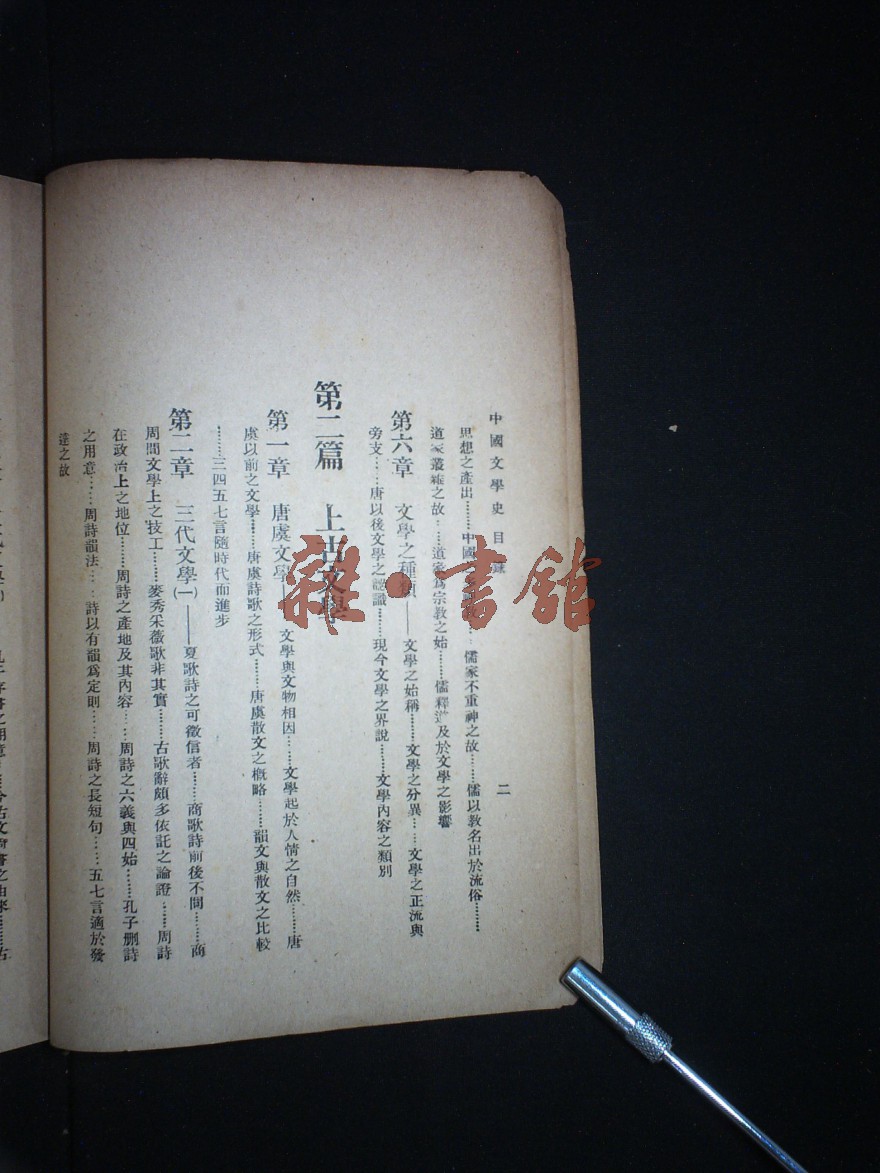 中國文學史 目
二
思想之產出……中國……儒家不重神之故……儒以教名出於流俗……
道家叢雜之故……道家爲宗教之始……儒釋道及於文學之影響
第六章 文學之種類——文學之始稱……文學之分異……文學之正流與
旁支……唐以後文學之認識……現今文學之界說……文學內容之類別
第二篇 上古文學
第一章 唐虞文學——文學與文物相因……文學起於人情之自然……唐
虞以前之文學……唐虞詩歌之形式……唐虞散文之槪略……韻文與散文之比較
……三四五七言隨時代而進步
第二章 三代文學(一)——夏歌詩之可徵信者……商歌詩前後不同……商
周間文學上之技工……麥秀采薇歌非其實……古歌辭頗多依託之論證……周詩
在政治上之地位……周詩之產地及其內容……周詩之六義與四始……孔子删詩
之用意……周詩韻法……詩以有韻爲定則……周詩之長短句……五七言適於發
達之故
雜·書館